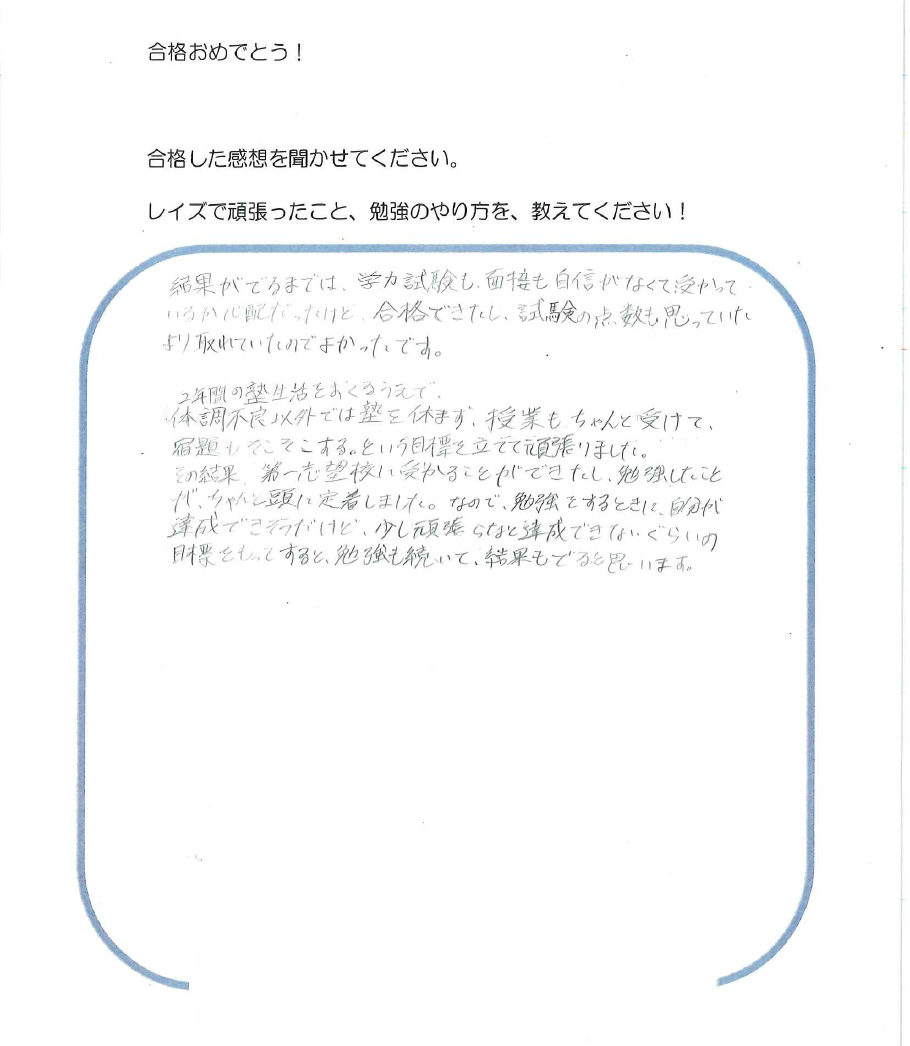 合格おめでとう！
合格した感想を聞かせてください。
レイズで頑張ったこと、勉強のやり方を、教えてください！
結果がでるまでは、学力試験も、面接も自信がなくて受かって
いるか心配だったけど、合格できたし、試験の点数も思っていた
より取れていたのでよかったです。
2年間の塾生活をおくるうえで、
体調不良以外では塾を休まず、授業もちゃんと受けて、
宿題もそこそこする。という目標を立てて頑張りました。
その結果、第一志望校に受かることができたし、勉強したこと
が、ちゃんと頭に定着しました。なので、勉強をするときに、自分が
達成できそうだけど、少し頑張らなと達成できないぐらいの
目標をもってすると、勉強も続いて、結果もでると思います。